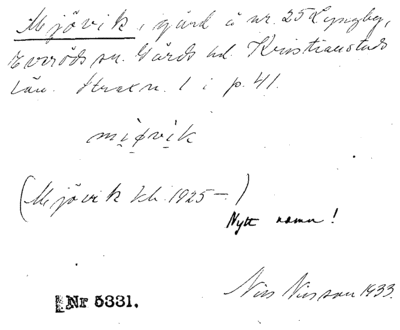 Mjövik, gård å nr. 25 Lyngby,
Everöds sn. Gärds hd. Kristianstads
län. Strax n. 1 i p. 41.
miøvik
(Mjövik kb. 1925 —)
Nytt namn!
Nils Nilsson 1933.
Nr 5331.